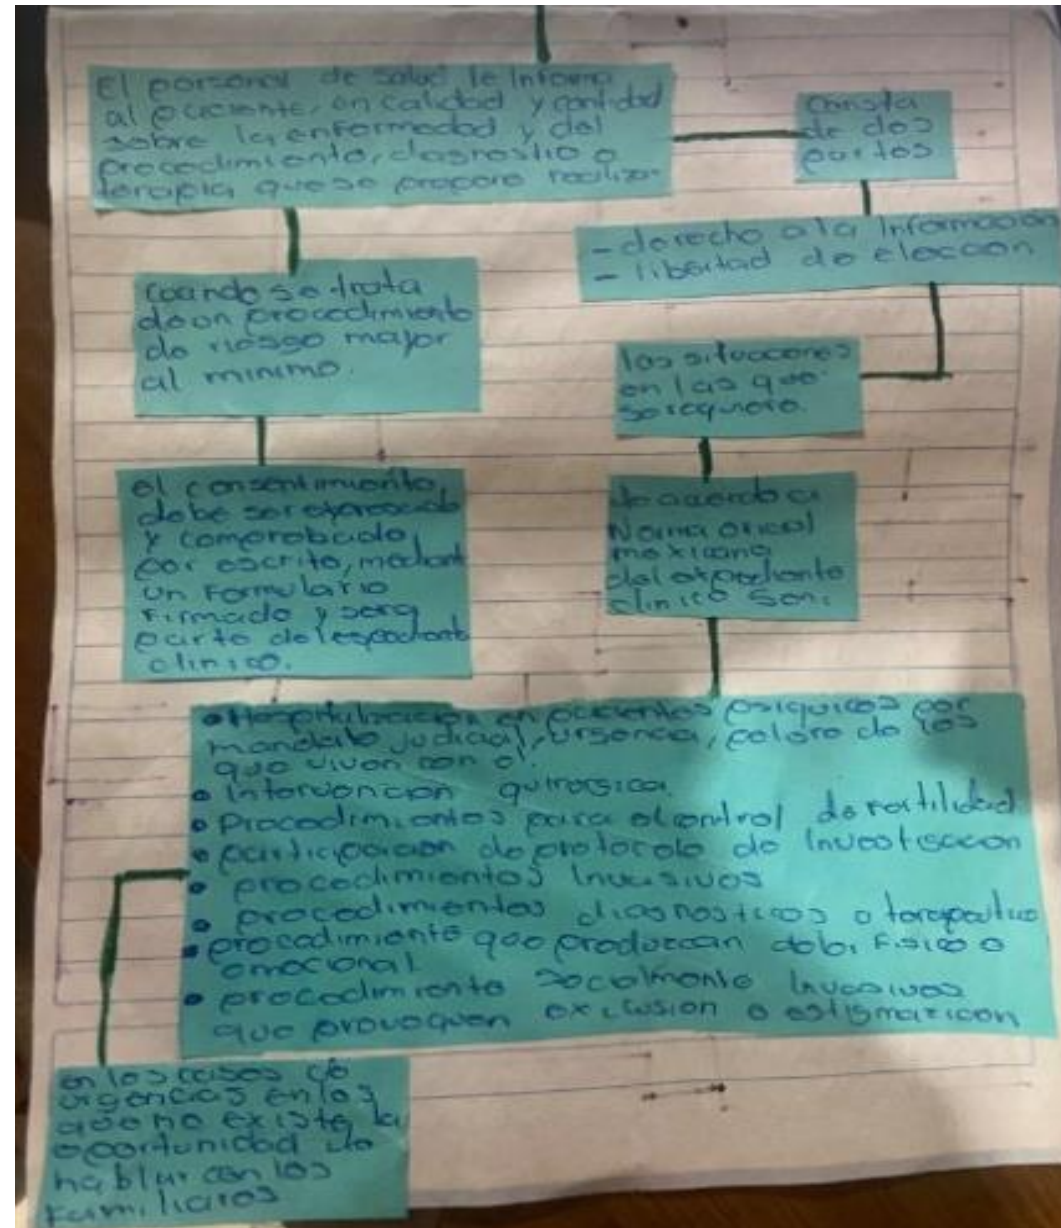 El personal de salud le Informa
al paciente, en calidad y cantidad
sobre la enformedad y del
procedimiento, diagnostio o
terapia que se propone realizar
Consta
de dos
partes
- derecho a la Información
- libertad de elección
Cuando se trata
de un procedimiento
de riesgo mayor
al minimo.
las situaciones
en las que
se requiere.
el consentimiento
debe ser expresado
y comprobado
por escrito, mediant
un Formulario
Firmado y sera
parte del expediente
clinico.
de acuerdo a
Norma oficial
mexicana
del expediente
clinico son:
• Hospitalización en pacientes psiquicos por
mandato judicial, urgencia, peligro de los
que viven con el.
• Intervencion quirurgica
• Procedimientos para el control de fertilidad
• participacion de protocolo de Investigacion
• procedimientos Invasivos
• procedimientos diagnosticos o terapeutico
• procedimiento que produzcan dolor Fisico o
emocional
• procedimiento socalmente Invasivos
que provoquen exclusion o estigmatizcion
en los casos de
urgencias en los
que no existe la
oportunidad de
hablar con los
Familiares